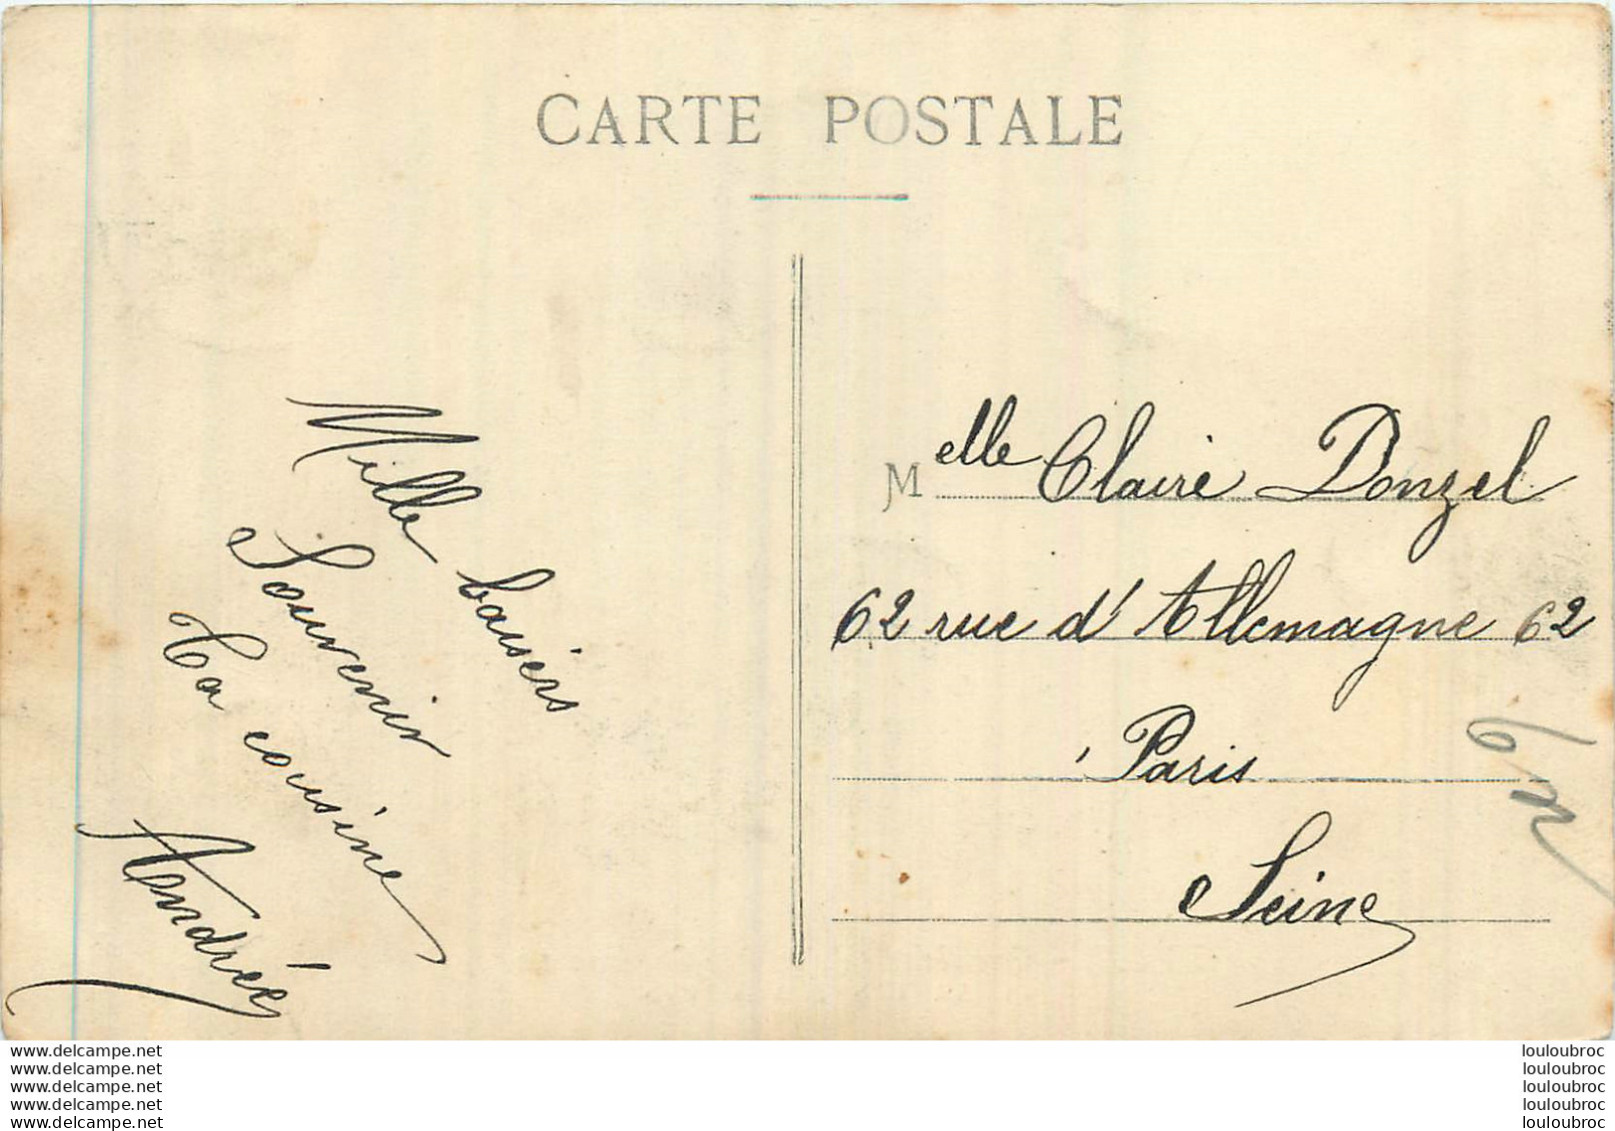 CARTE POSTALE
Mille baisers
Souvenir
Ta cousine
Andrée
Melle Claire Donzel
62 rue d'Allemagne 62
Paris
Seine
www.delcampe.net
www.delcampe.net
www.delcampe.net
www.delcampe.net
www.delcampe.net
louloubroc
louloubroc
louloubroc
louloubroc
louloubroc